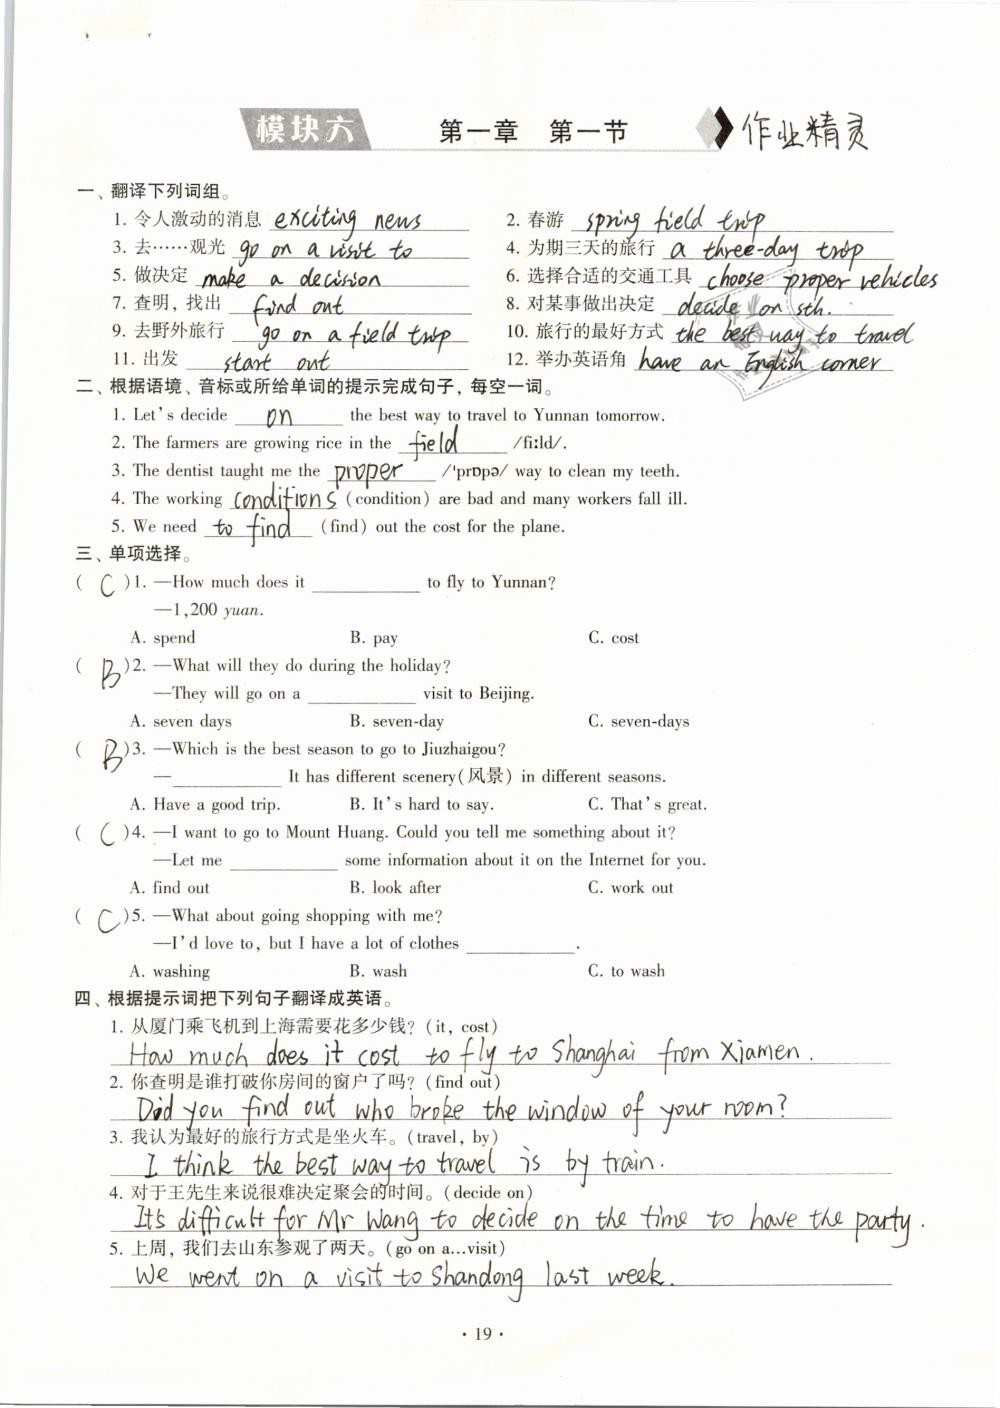 模块六 第一章 第一节 作业精灵
一、翻译下列词组。
1. 令人激动的消息 exciting news 2. 春游 spring field trip
3. 去……观光 go on a visit to 4. 为期三天的旅行 a three-day trip
5. 做决定 make a decision 6. 选择合适的交通工具 choose proper vehicles
7. 查明，找出 find out 8. 对某事做出决定 decide on sth.
9. 去野外旅行 go on a field trip 10. 旅行的最好方式 the best way to travel
11. 出发 start out 12. 举办英语角 have an English corner
二、根据语境、音标或所给单词的提示完成句子，每空一词。
1. Let's decide on the best way to travel to Yunnan tomorrow.
2. The farmers are growing rice in the field /fiːld/.
3. The dentist taught me the proper /ˈprɒpə/ way to clean my teeth.
4. The working conditions (condition) are bad and many workers fall ill.
5. We need to find (find) out the cost for the plane.
三、单项选择。
( C )1. —How much does it ____ to fly to Yunnan?
—1,200 yuan.
A. spend B. pay C. cost
( B )2. —What will they do during the holiday?
—They will go on a ____ visit to Beijing.
A. seven days B. seven-day C. seven-days
( B )3. —Which is the best season to go to Jiuzhaigou?
—____ It has different scenery(风景) in different seasons.
A. Have a good trip. B. It's hard to say. C. That's great.
( C )4. —I want to go to Mount Huang. Could you tell me something about it?
—Let me ____ some information about it on the Internet for you.
A. find out B. look after C. work out
( C )5. —What about going shopping with me?
—I'd love to, but I have a lot of clothes ____.
A. washing B. wash C. to wash
四、根据提示词把下列句子翻译成英语。
1. 从厦门乘飞机到上海需要花多少钱？(it, cost)
How much does it cost to fly to Shanghai from Xiamen.
2. 你查明是谁打破你房间的窗户了吗？(find out)
Did you find out who broke the window of your room?
3. 我认为最好的旅行方式是坐火车。(travel, by)
I think the best way to travel is by train.
4. 对于王先生来说很难决定聚会的时间。(decide on)
It's difficult for Mr Wang to decide on the time to have the party.
5. 上周，我们去山东参观了两天。(go on a...visit)
We went on a visit to Shandong last week.
· 19 ·